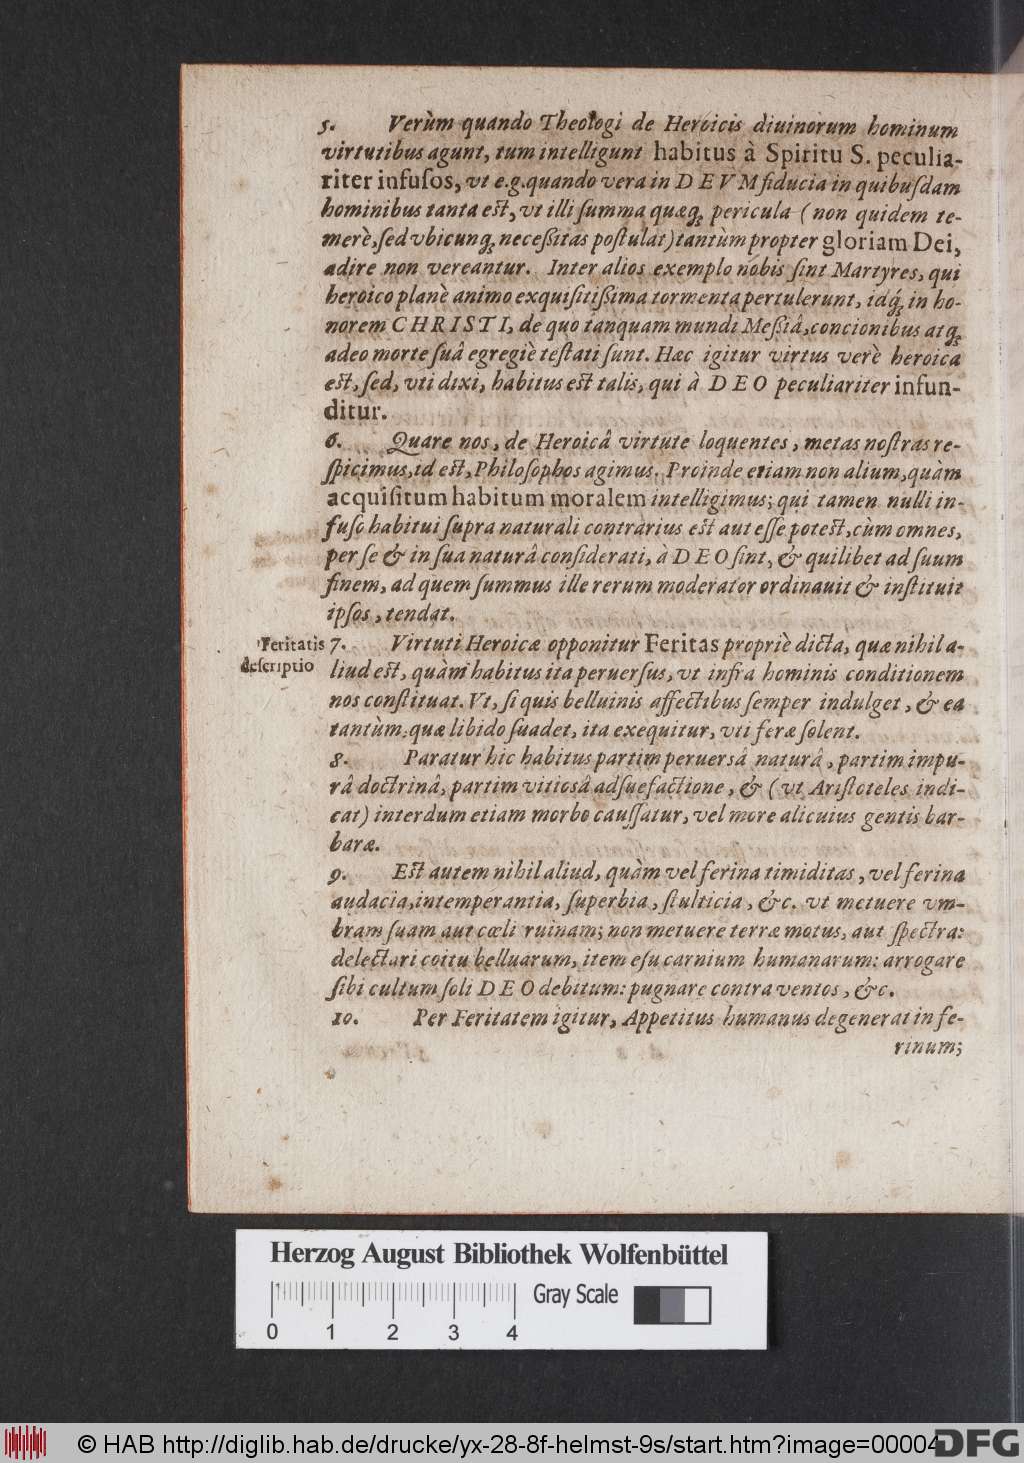 5. Verùm quando Theologi de Heroicis diuinorum hominum
virtutibus agunt, tum intelligunt habitus à Spiritu S. peculia-
riter infusos, vt e.g. quando vera in DEVM fiducia in quibuſdam
hominibus tanta eſt, vt illi ſumma quæq; pericula (non quidem te-
merè, ſed vbicunq; neceßitas poſtulat) tantùm propter gloriam Dei,
adire non vereantur. Inter alios exemplo nobis ſint Martyres, qui
heroico planè animo exquiſitißima tormenta pertulerunt, idq́; in ho-
norem CHRISTI, de quo tanquam mundi Meßiâ, concionibus atq;
adeo morte ſuâ egregiè teſtati ſunt. Hæc igitur virtus verè heroica
eſt, ſed, vti dixi, habitus eſt talis, qui à DEO peculiariter infun-
ditur.
6. Quare nos, de Heroicâ virtute loquentes, metas noſtras re-
ſpicimus, id eſt, Philoſophos agimus. Proinde etiam non alium, quàm
acquiſitum habitum moralem intelligimus; qui tamen nulli in-
fuſo habitui ſupra naturali contrarius eſt aut eſſe poteſt, cùm omnes,
per ſe & in ſua naturâ conſiderati, à DEO ſint, & quilibet ad ſuum
finem, ad quem ſummus ille rerum moderator ordinauit & inſtituit
ipſos, tendat.
Feritatis
deſcriptio
7. Virtuti Heroicæ opponitur Feritas propriè dicta, quæ nihil a-
liud eſt, quàm habitus ita peruerſus, vt infra hominis conditionem
nos conſtituat. Vt, ſi quis belluinis affectibus ſemper indulget, & ea
tantùm, quæ libido ſuadet, ita exequitur, vti feræ ſolent.
8. Paratur hic habitus partim peruersâ naturâ, partim impu-
râ doctrinâ, partim vitiosâ adſuefactione, & (vt Ariſtoteles indi-
cat) interdum etiam morbo cauſſatur, vel more alicuius gentis bar-
baræ.
9. Eſt autem nihil aliud, quàm vel ferina timiditas, vel ferina
audacia, intemperantia, ſuperbia, ſtulticia, &c. vt metuere vm-
bram ſuam aut cœli ruinam; non metuere terræ motus, aut ſpectra:
delectari coitu belluarum, item eſu carnium humanarum: arrogare
ſibi cultum ſoli DEO debitum: pugnare contra ventos, &c.
10. Per Feritatem igitur, Appetitus humanus degenerat in fe-
rinum;
Herzog August Bibliothek Wolfenbüttel
Gray Scale
0 1 2 3 4
© HAB http://diglib.hab.de/drucke/yx-28-8f-helmst-9s/start.htm?image=00004
DFG